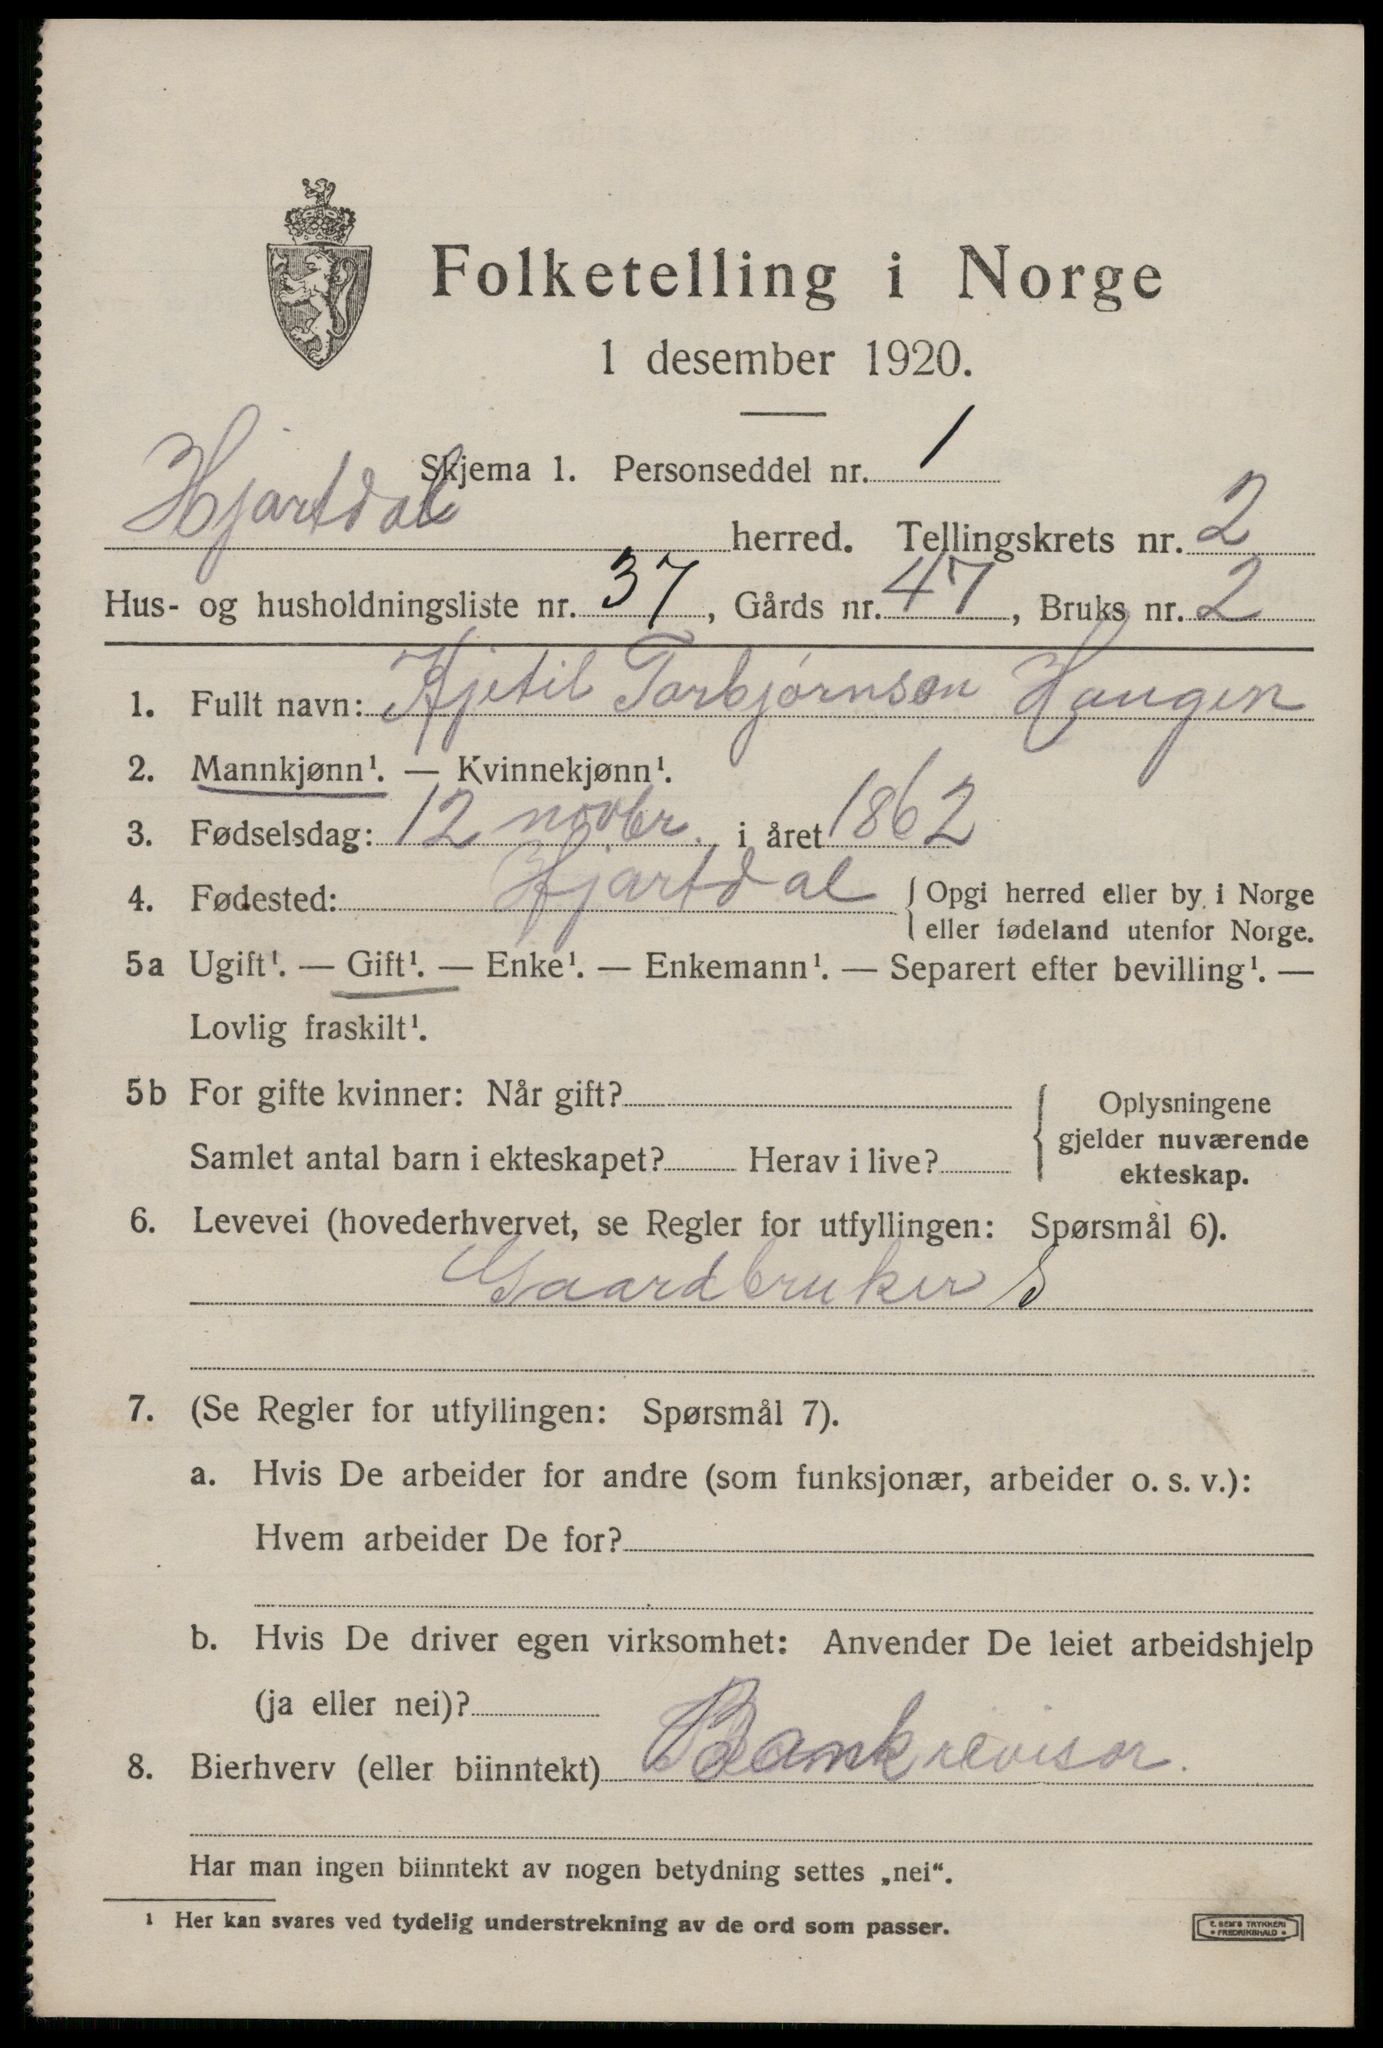 Folketelling i Norge
1 desember 1920.
Skjema 1. Personseddel nr. 1
Hjartdal herred. Tellingskrets nr. 2
Hus- og husholdningsliste nr. 37, Gårds nr. 47, Bruks nr. 2
1. Fullt navn: Kjetil Torbjørnsen Haugen
2. Mannkjønn¹. — Kvinnekjønn¹.
3. Fødselsdag: 12 novbr. i året 1862
4. Fødested: Hjartdal { Opgi herred eller by i Norge
eller fødeland utenfor Norge.
5a Ugift¹. — Gift¹. — Enke¹. — Enkemann¹. — Separert efter bevilling¹. —
Lovlig fraskilt¹.
5b For gifte kvinner: Når gift?
Samlet antal barn i ekteskapet? Herav i live?
{ Oplysningene
gjelder nuværende
ekteskap.
6. Levevei (hovederhvervet, se Regler for utfyllingen: Spørsmål 6).
Gaardbruker S
7. (Se Regler for utfyllingen: Spørsmål 7).
a. Hvis De arbeider for andre (som funksjonær, arbeider o. s. v.):
Hvem arbeider De for?
b. Hvis De driver egen virksomhet: Anvender De leiet arbeidshjelp
(ja eller nei)?
8. Bierhverv (eller biinntekt) Bankrevisor.
Har man ingen biinntekt av nogen betydning settes „nei“.
¹ Her kan svares ved tydelig understrekning av de ord som passer.
E. SEM'S TRYKKERI
• FREDRIKSHALD •